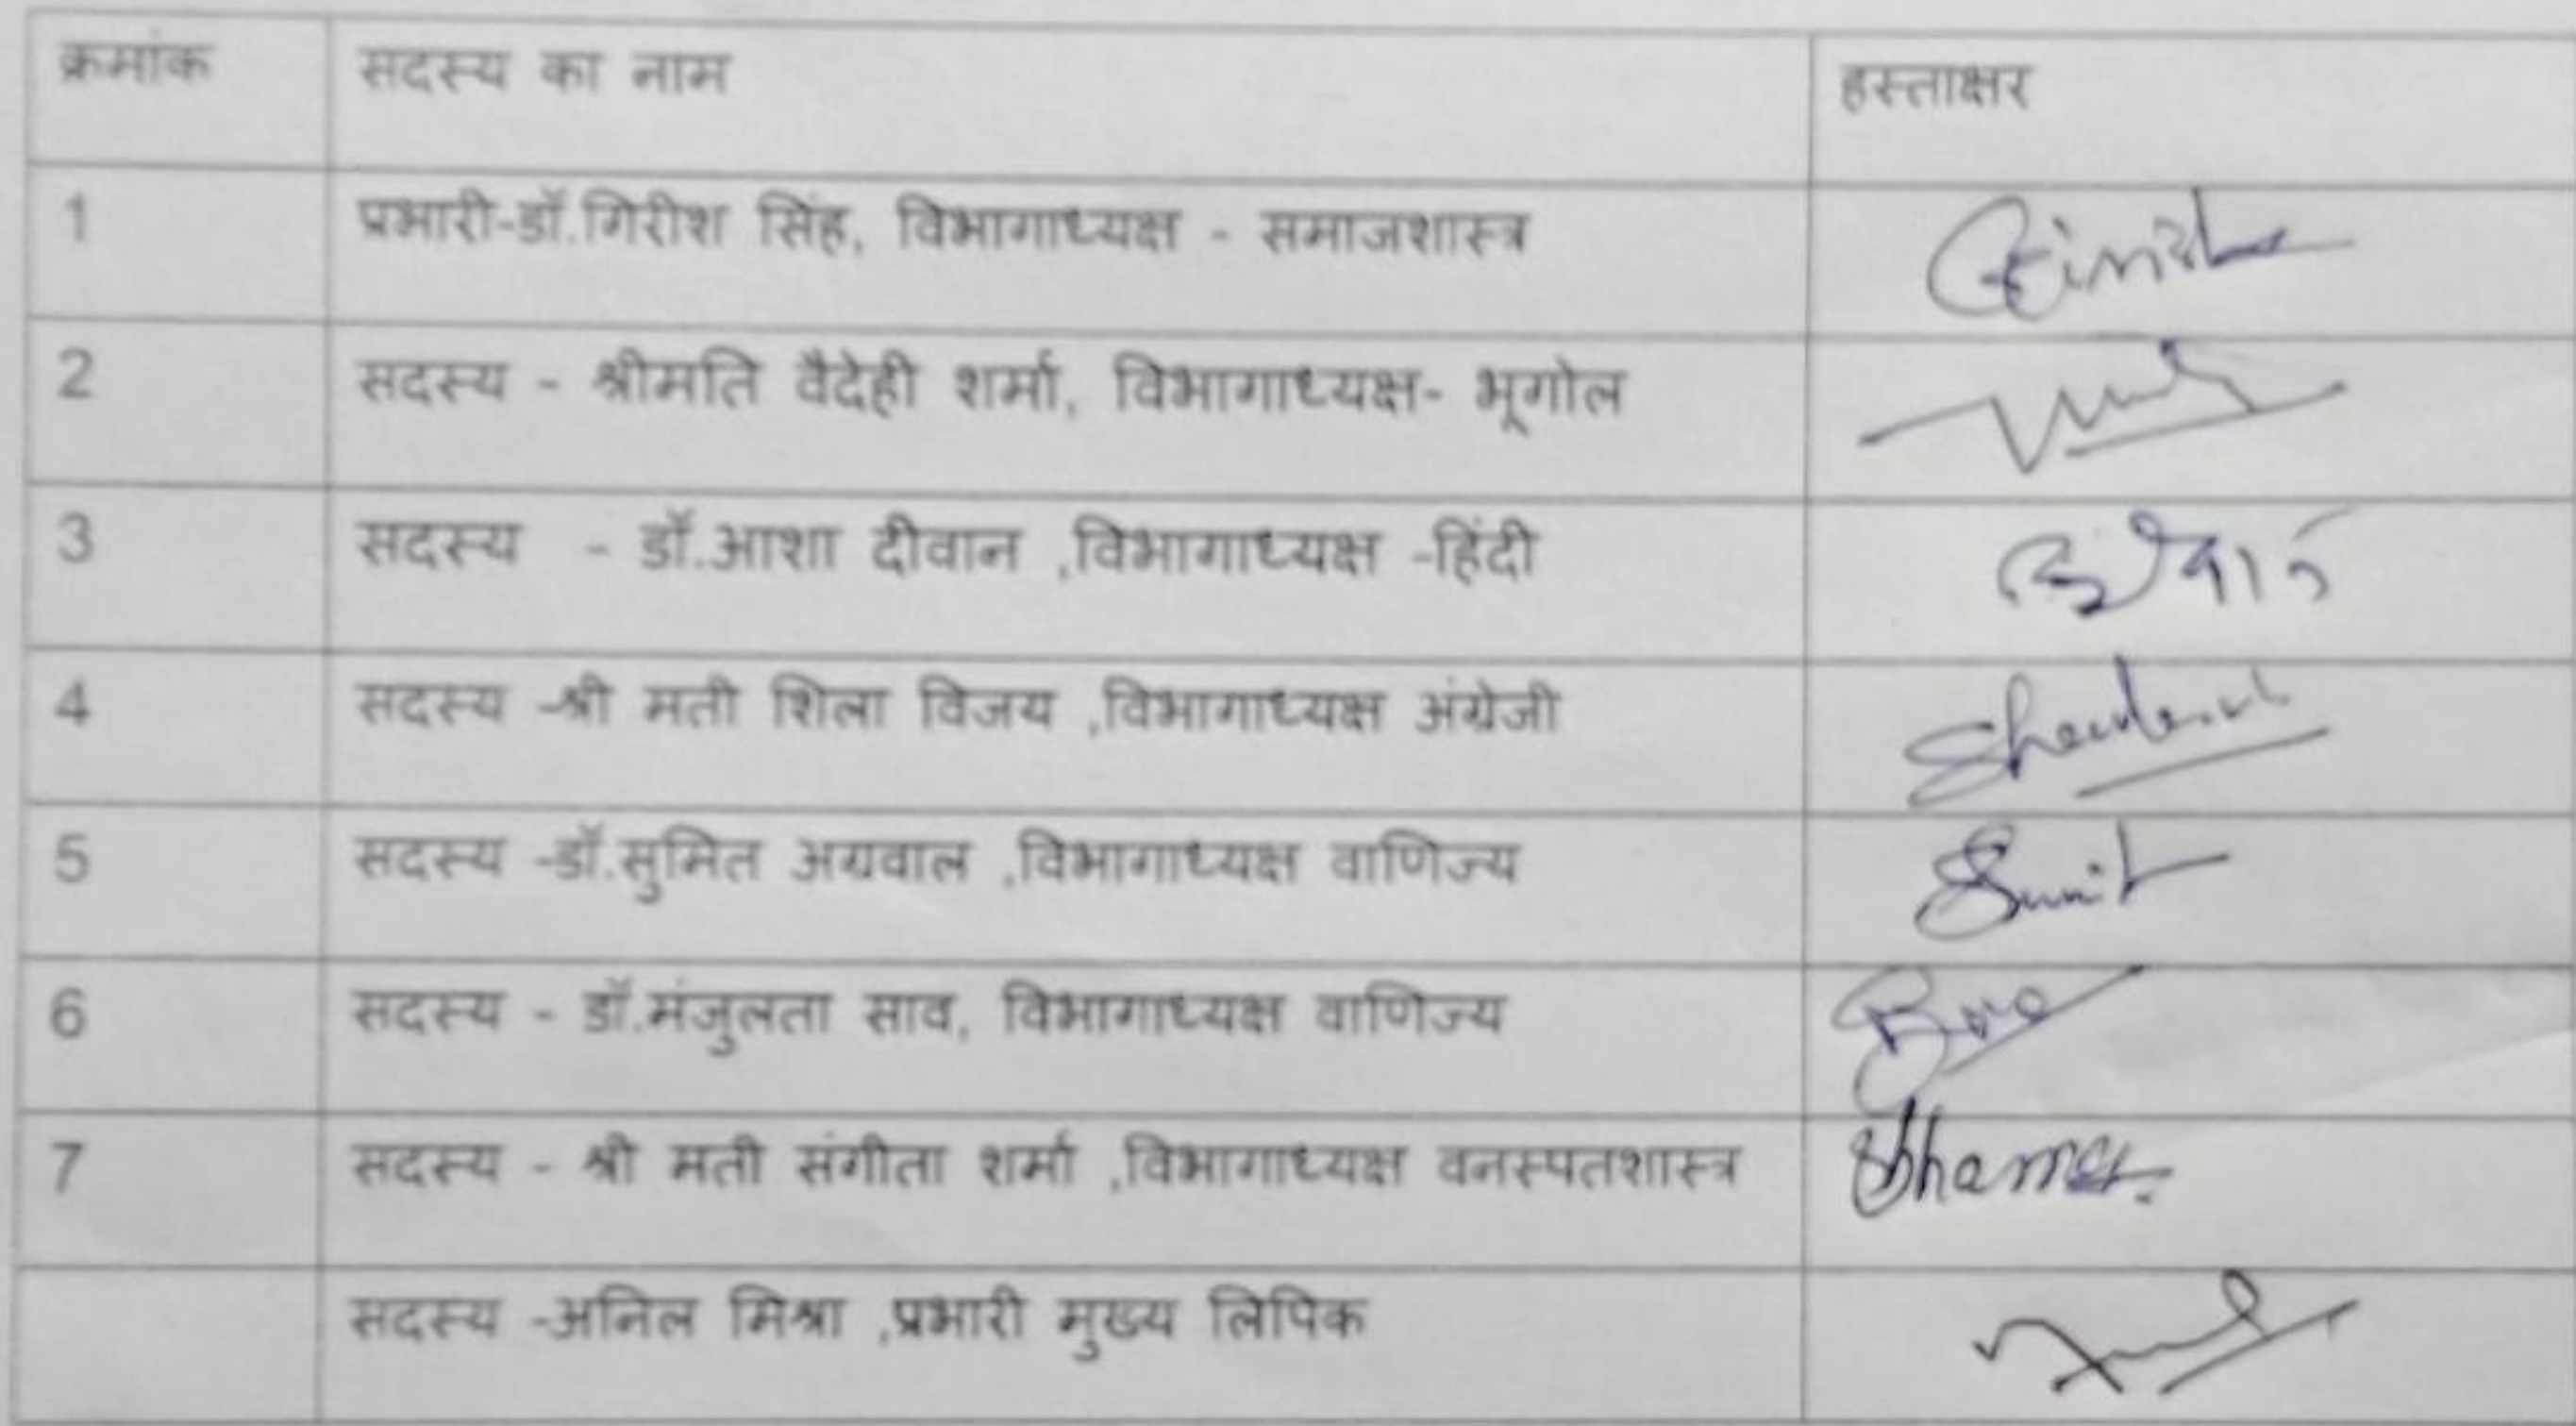 क्रमांक सदस्य का नाम हस्ताक्षर
1 प्रभारी-डॉ.गिरीश सिंह, विभागाध्यक्ष - समाजशास्त्र
2 सदस्य - श्रीमति वैदेही शर्मा, विभागाध्यक्ष- भूगोल
3 सदस्य - डॉ.आशा दीवान ,विभागाध्यक्ष -हिंदी
4 सदस्य -श्री मती शिला विजय ,विभागाध्यक्ष अंग्रेजी
5 सदस्य -डॉ.सुमित अग्रवाल ,विभागाध्यक्ष वाणिज्य Sumit
6 सदस्य - डॉ.मंजुलता साव, विभागाध्यक्ष वाणिज्य
7 सदस्य - श्री मती संगीता शर्मा ,विभागाध्यक्ष वनस्पतशास्त्र
सदस्य -अनिल मिश्रा ,प्रभारी मुख्य लिपिक